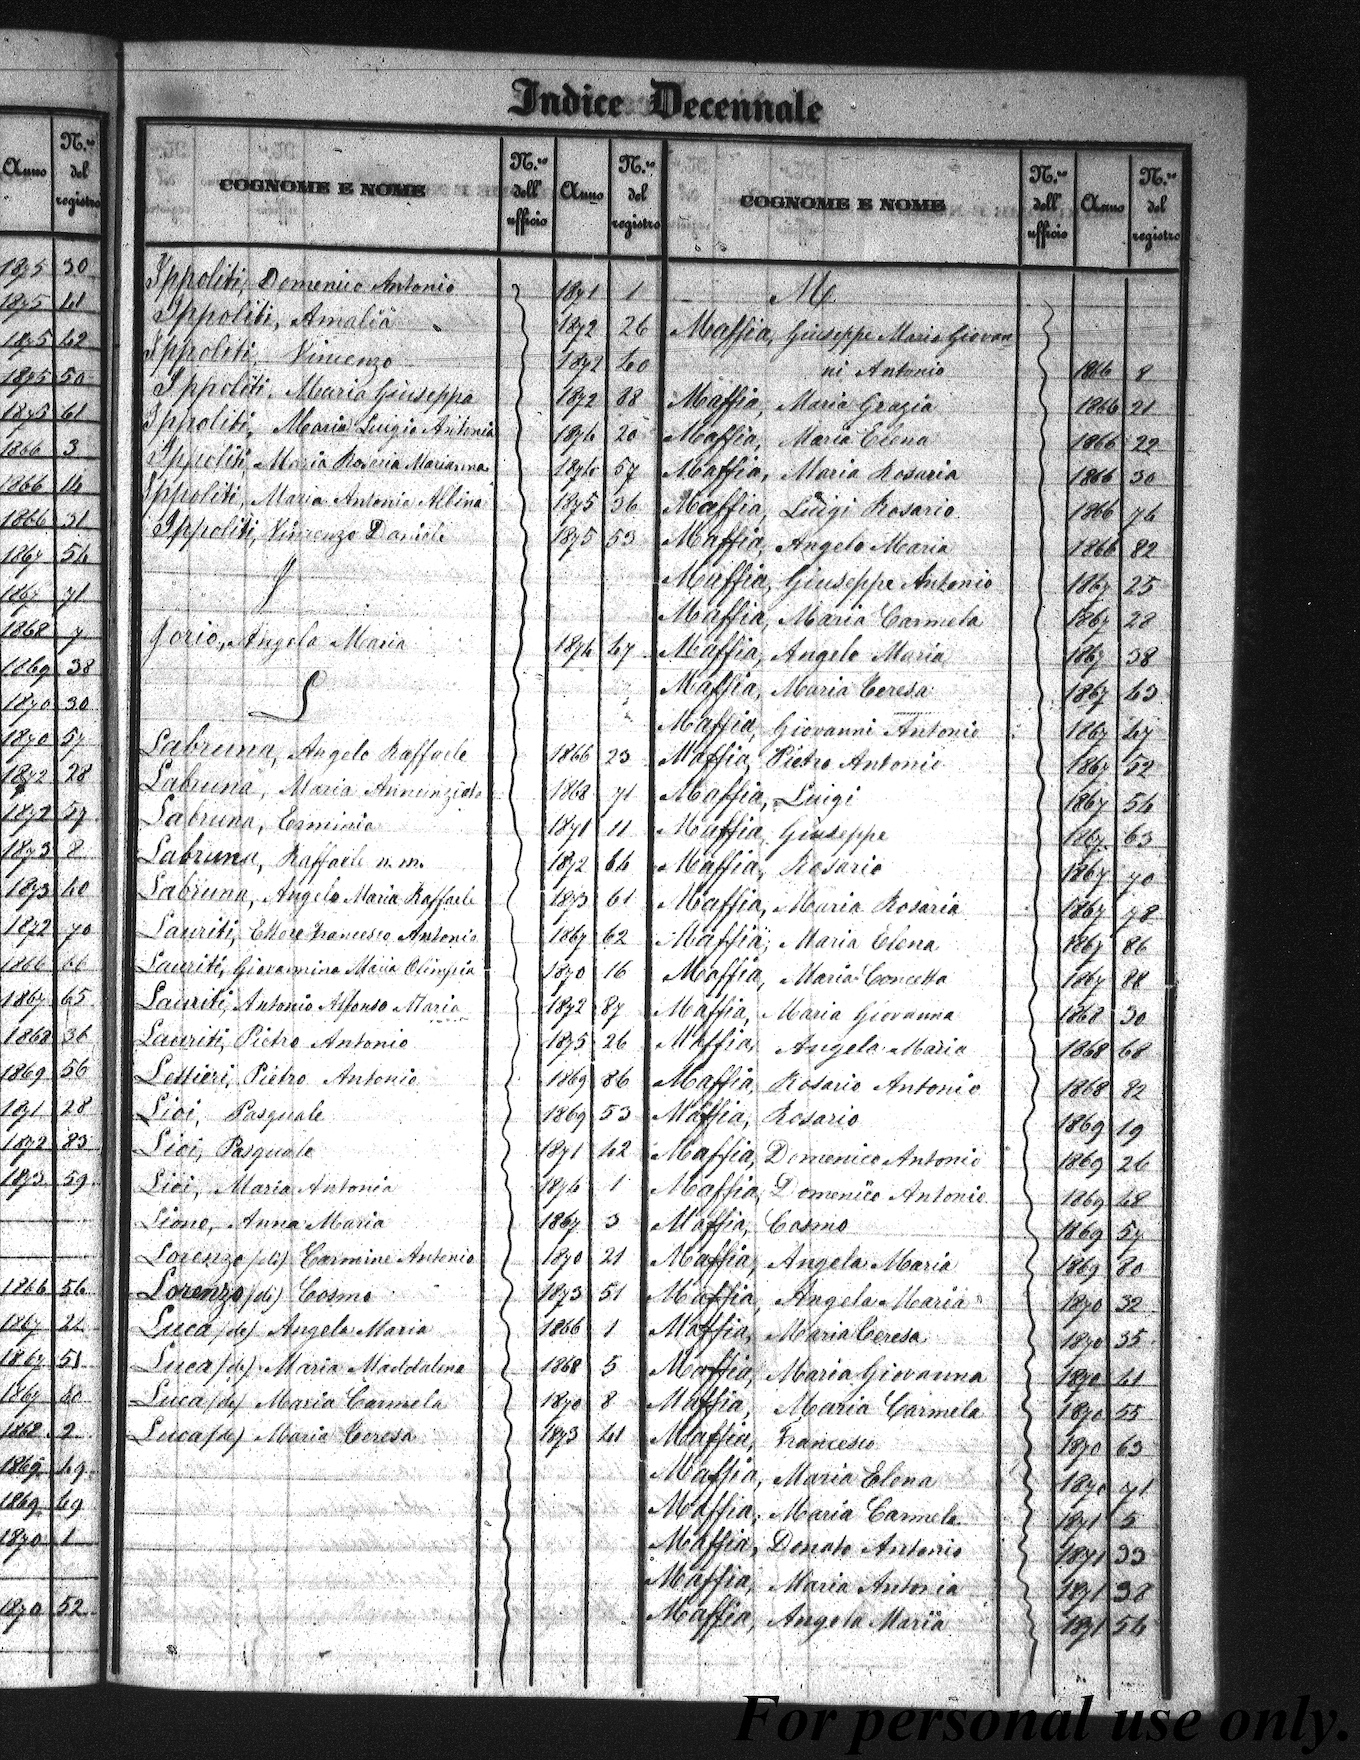 Indice Decennale
Anno
N.ro del registro
1875 30
1875 41
1875 42
1875 50
1875 61
1866 3
1866 14
1866 31
1867 54
1867 71
1868 7
1869 38
1870 30
1870 57
1872 28
1872 57
1873 8
1873 40
1872 70
1866 66
1867 65
1868 36
1869 56
1871 28
1872 83
1873 59
1866 56
1867 21
1867 51
1867 60
1868 2
1869 49
1869 69
1870 1
1870 52
COGNOME E NOME
N.ro dell' ufficio
Anno
N.ro del registro
Ippoliti, Domenico Antonio 1871 1
Ippoliti, Amalia 1872 26
Ippoliti, Vincenzo 1872 40
Ippoliti, Maria Giuseppa 1872 88
Ippoliti, Maria Luigia Antonia 1874 20
Ippoliti, Maria Rosaria Marianna 1874 57
Ippoliti, Maria Antonia Albina 1875 36
Ippoliti, Vincenzo Daniele 1875 53
J
Jorio, Angela Maria 1874 47
L
Labruna, Angelo Raffaele 1866 23
Labruna, Maria Annunziata 1868 71
Labruna, Erminia 1871 11
Labruna, Raffaele n. m. 1872 64
Labruna, Angelo Maria Raffaele 1873 61
Lauriti, Ettore Francesco Antonio 1867 62
Lauriti, Giovannina Maria Olimpia 1870 16
Lauriti, Antonio Alfonso Maria 1872 87
Lauriti, Pietro Antonio 1875 26
Lettieri, Pietro Antonio 1869 86
Lioi, Pasquale 1869 53
Lioi, Pasquale 1871 42
Lioi, Maria Antonia 1874 1
Lione, Anna Maria 1867 3
Lorenzo (di) Carmine Antonio 1870 21
Lorenzo (di) Cosmo 1873 51
Luca (de) Angela Maria 1866 1
Luca (de) Maria Maddalena 1868 5
Luca (de) Maria Carmela 1870 8
Luca (de) Maria Teresa 1873 41
COGNOME E NOME
N.ro dell' ufficio
Anno
N.ro del registro
M
Maffia, Giuseppe Maria Giovan
ni Antonio 1866 8
Maffia, Maria Grazia 1866 21
Maffia, Maria Elena 1866 22
Maffia, Maria Rosaria 1866 30
Maffia, Luigi Rosario 1866 76
Maffia, Angelo Maria 1866 82
Maffia, Giuseppe Antonio 1867 25
Maffia, Maria Carmela 1867 28
Maffia, Angelo Maria 1867 38
Maffia, Maria Teresa 1867 43
Maffia, Giovanni Antonio 1867 47
Maffia, Pietro Antonio 1867 52
Maffia, Luigi 1867 54
Maffia, Giuseppe 1867 63
Maffia, Rosario 1867 70
Maffia, Maria Rosaria 1867 78
Maffia, Maria Elena 1867 86
Maffia, Maria Concetta 1867 88
Maffia, Maria Giovanna 1868 30
Maffia, Angela Maria 1868 68
Maffia, Rosario Antonio 1868 82
Maffia, Rosario 1869 19
Maffia, Domenico Antonio 1869 26
Maffia, Domenico Antonio 1869 48
Maffia, Cosmo 1869 57
Maffia, Angela Maria 1869 80
Maffia, Angela Maria 1870 32
Maffia, Maria Teresa 1870 35
Maffia, Maria Giovanna 1870 41
Maffia, Maria Carmela 1870 55
Maffia, Francesco 1870 63
Maffia, Maria Elena 1870 71
Maffia, Maria Carmela 1871 5
Maffia, Donato Antonio 1871 33
Maffia, Maria Antonia 1871 38
Maffia, Angela Maria 1871 54
For personal use only.